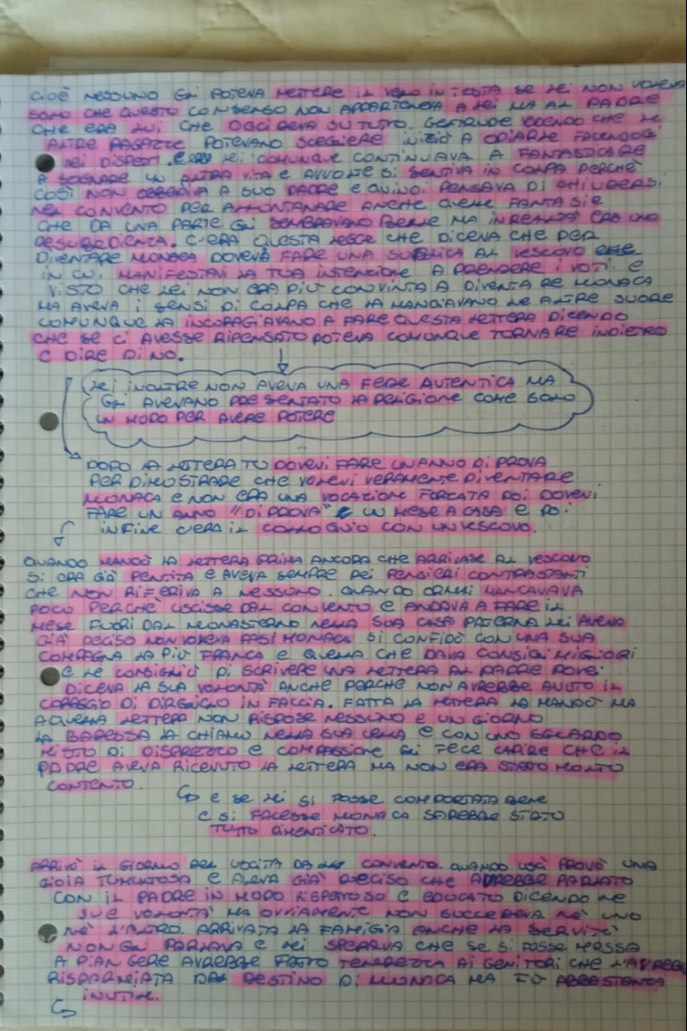 CIOÈ NESSUNO GLI POTEVA METTERE IL VELO IN TESTA SE LEI NON VOLEVA
SOLO CHE QUESTO CONSENSO NON APPARTENEVA A LEI MA AL PADRE
CHE ERA LUI CHE DECIDEVA SU TUTTO. GERTRUDE VEDENDO CHE LE
ALTRE RAGAZZE POTEVANO SCEGLIERE INIZIÒ A ODIARLE FACENDOGLI
DEI DISPETTI E LEI COMUNQUE CONTINUAVA A FANTASTICARE
E SOGNARE UN ALTRA VITA E AVVOLTE SI SENTIVA IN COLPA PERCHÈ
COSÌ NON OBBEDIVA A SUO PADRE E QUINDI PENSAVA DI CHIUDERSI
NEL CONVENTO PER ALLONTANARE ANCHE QUELLE FANTASIE
CHE DA UNA PARTE GLI SEMBRAVANO BELLE MA IN REALTÀ ERA UNA
DESUBBEDIENZA. C'ERA QUESTA LEGGE CHE DICEVA CHE PER
DIVENTARE MONACA DOVEVI FARE UNA SUPPLICA AL VESCOVO
IN CUI MANIFESTAVI LA TUA INTENZIONE A PRENDERE I VOTI E
VISTO CHE LEI NON ERA PIÙ CONVINTA A DIVENTARE MONACA
MA AVEVA I SENSI DI COLPA CHE LA MANGIAVANO LE ALTRE SUORE
COMUNQUE LA INCORAGIAVANO A FARE QUESTA LETTERA DICENDO
CHE SE CI AVESSE RIPENSATO POTEVA COMUNQUE TORNARE INDIETRO
E DIRE DI NO.
LEI INOLTRE NON AVEVA UNA FEDE AUTENTICA MA
GLI AVEVANO PRESENTATO LA RELIGIONE COME SOLO
UN MODO PER AVERE POTERE
DOPO LA LETTERA TU DOVEVI FARE UN ANNO DI PROVA
PER DIMOSTRARE CHE VOLEVI VERAMENTE DIVENTARE
MONACA E NON ERA UNA VOCAZIONE FORZATA POI DOVEVI
FARE UN ANNO "DI PROVA" E UN MESE A CASA E POI
INFINE C'ERA IL COLLOQUIO CON UN VESCOVO.
QUANDO MANDÒ LA LETTERA PRIMA ANCORA CHE ARRIVASSE AL VESCOVO
SI ERA GIÀ PENTITA E AVEVA SEMPRE DEI PENSIERI CONTRASTANTI
CHE NON RIFERIVA A NESSUNO. QUANDO ORMAI MANCAVA
POCO PERCHÈ USCISSE DAL CONVENTO E ANDAVA A FARE IL
MESE FUORI DAL MONASTERO NELLA SUA CASA PATERNA LEI AVEVA
GIÀ DECISO NON VOLEVA FARSI MONACA SI CONFIDÒ CON UNA SUA
COMPAGNA LA PIÙ FRANCA E QUELLA CHE DAVA CONSIGLI MIGLIORI
E LE CONSIGLIÒ DI SCRIVERE UNA LETTERA AL PADRE DOVE
DICEVA LA SUA VOLONTÀ ANCHE PERCHÈ NON AVREBBE AVUTO IL
CORAGGIO DI DIRGLIELO IN FACCIA. FATTA LA LETTERA LA MANDÒ MA
A QUELLA LETTERA NON RISPOSE NESSUNO E UN GIORNO
LA BADESSA LA CHIAMÒ NELLA SUA CELLA E CON UNO SGUARDO
MISTO DI DISPREZZO E COMPASSIONE GLI FECE CAPIRE CHE IL
PADRE AVEVA RICEVUTO LA LETTERA MA NON ERA STATO MOLTO
CONTENTO.
E SE LEI SI FOSSE COMPORTATA BENE
E SI FACESSE MONACA SAREBBE STATO
TUTTO DIMENTICATO.
ARRIVÒ IL GIORNO DEL USCITA DAL CONVENTO. QUANDO USCÌ PROVÒ UNA
GIOIA TUMULTUOSA E AVEVA GIÀ DECISO CHE AVREBBE PARLATO
CON IL PADRE IN MODO RISPETTOSO E EDUCATO DICENDO LE
SUE VOLONTÀ MA OVVIAMENTE NON SUCCEDEVA NÈ UNO
NÈ L'ALTRO. ARRIVATA LA FAMIGLIA ANCHE LA SERVITÙ
NON GLI PARLAVA E LEI SPERAVA CHE SE SI FOSSE MESSA
A PIANGERE AVREBBE FATTO TENEREZZA AI GENITORI CHE L'AVREBBERO
RISPARMIATA DAL DESTINO DI MONACA MA FÙ ABBASTANZA
INUTILE.